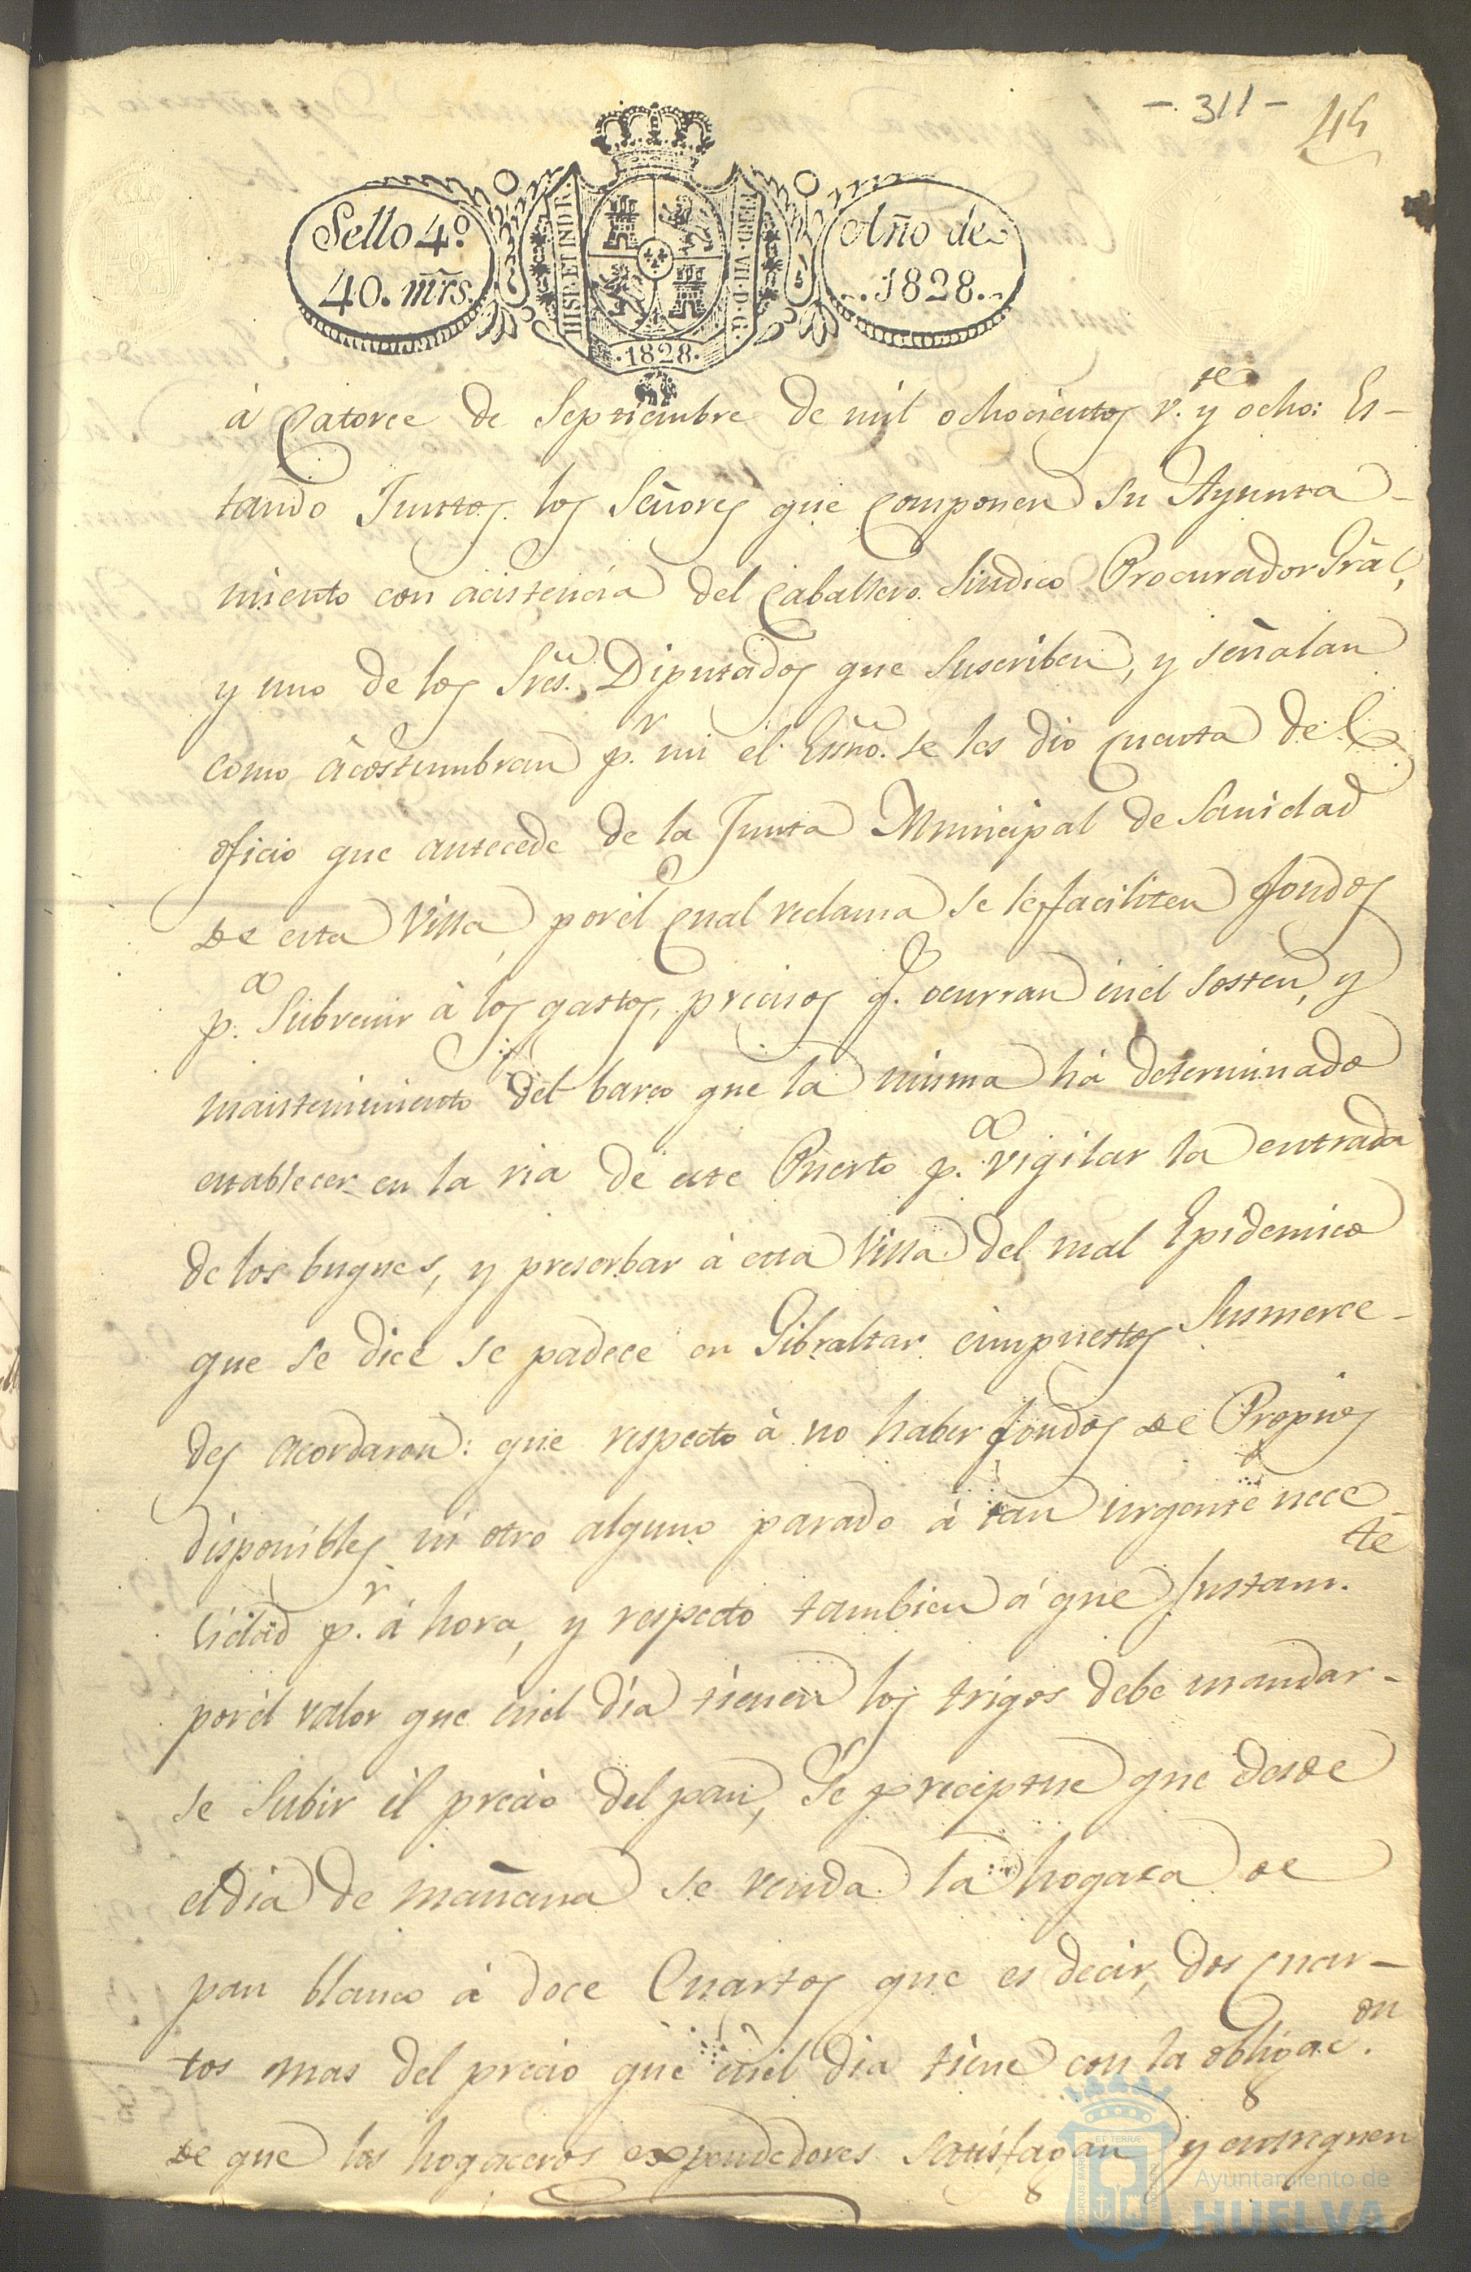 - 311 -
45
Sello 4º
40. mrs.
HISP. ET IND. R.
FERD. VII. D. G.
.1828.
Año de
1828.
à Catorce de Septiembre de mil ochocientos v.te y ocho: Es-
tando Juntos los Señores que Componen su Ayunta-
miento con acistencia del Caballero Sindico Procurador Gral,
y uno de los Sres. Diputados que Suscriben, y señalan
como àcostumbran p.r mi el Essno. se les dio Cuenta del
oficio que antecede de la Junta Municipal de Sanidad
de esta Villa, por èl Cual reclama se le faciliten fondos
p.a Subvenir à los gastos, precisos q. ocurran en el Sosten, y
mantenimiento del barco que la misma hà determinado
establecer en la ria de este Puerto p.a vigilar la entrada
de los buques, y preserbar à esta Villa del mal Epidemico
que se dice se padece en Gibraltar èimpuestos Susmerce-
des acordaron: que respecto à no haber fondos de Propios
disponibles ni otro alguno parado à tan urgente nece-
sidad p.r à hora, y respecto tambien à que Justam.te
por èl valor que en el dia tienen los trigos debe mandar-
se Subir èl precio del pan, Se preceptue que desde
el dia de mañana se venda la hogaza de
pan blanco à doce Cuartos que es decir, dos Cuar-
tos mas del precio que en el dia tiene con la obligac.on
de que los hogaceros expendedores satisfagan y entreguen
Ayuntamiento de
HUELVA